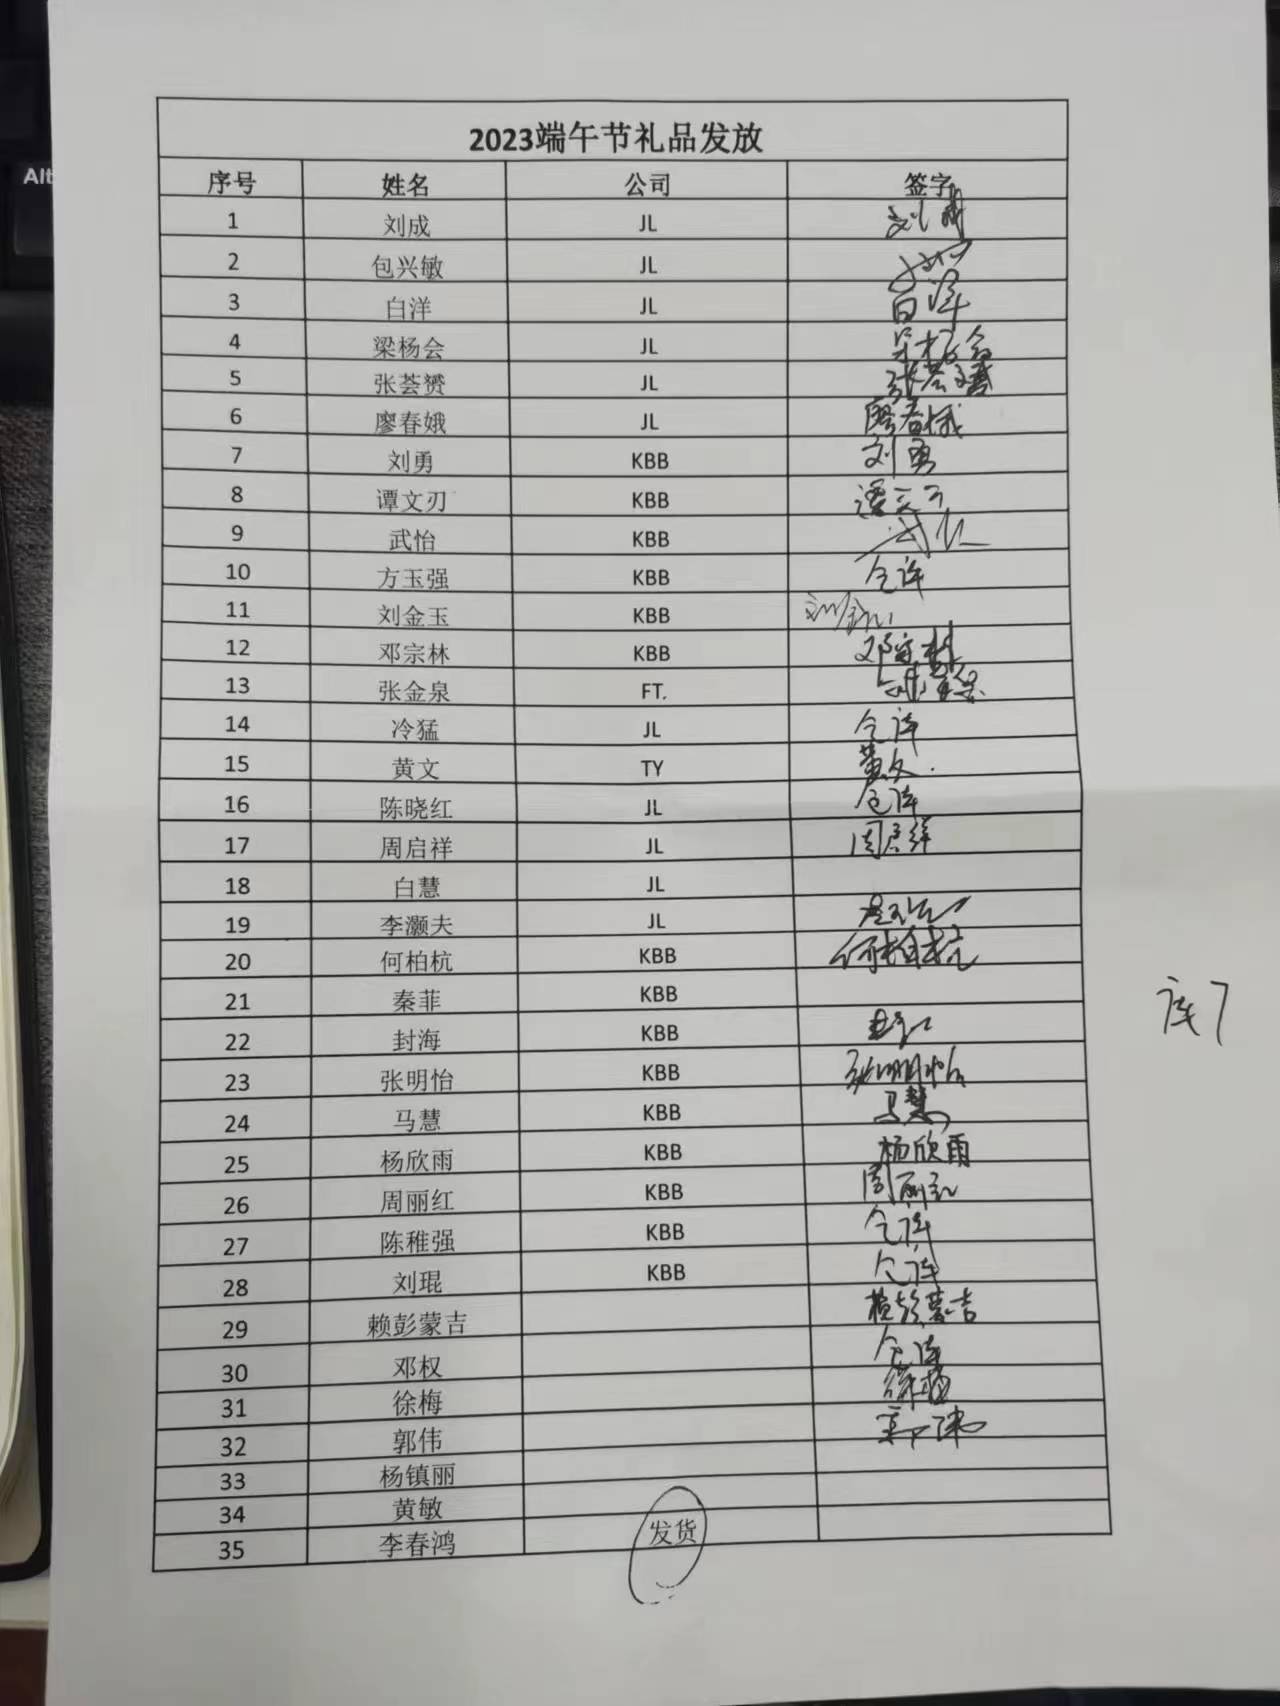 Alt
2023端午节礼品发放
序号 姓名 公司 签字
1 刘成 JL
2 包兴敏 JL
3 白洋 JL 白洋
4 梁杨会 JL
5 张荟赟 JL
6 廖春娥 JL 廖春娥
7 刘勇 KBB 刘勇
8 谭文刃 KBB
9 武怡 KBB
10 方玉强 KBB
11 刘金玉 KBB
12 邓宗林 KBB 邓宗林
13 张金泉 FT.
14 冷猛 JL
15 黄文 TY 黄文
16 陈晓红 JL
17 周启祥 JL 周启祥
18 白慧 JL
19 李灏夫 JL
20 何柏杭 KBB 何柏杭
21 秦菲 KBB
22 封海 KBB
23 张明怡 KBB 张明怡
24 马慧 KBB 马慧
25 杨欣雨 KBB 杨欣雨
26 周丽红 KBB 周丽红
27 陈稚强 KBB
28 刘琨 KBB
29 赖彭蒙吉 赖彭蒙吉
30 邓权
31 徐梅 徐梅
32 郭伟 郭伟
33 杨镇丽
34 黄敏
35 李春鸿 发货